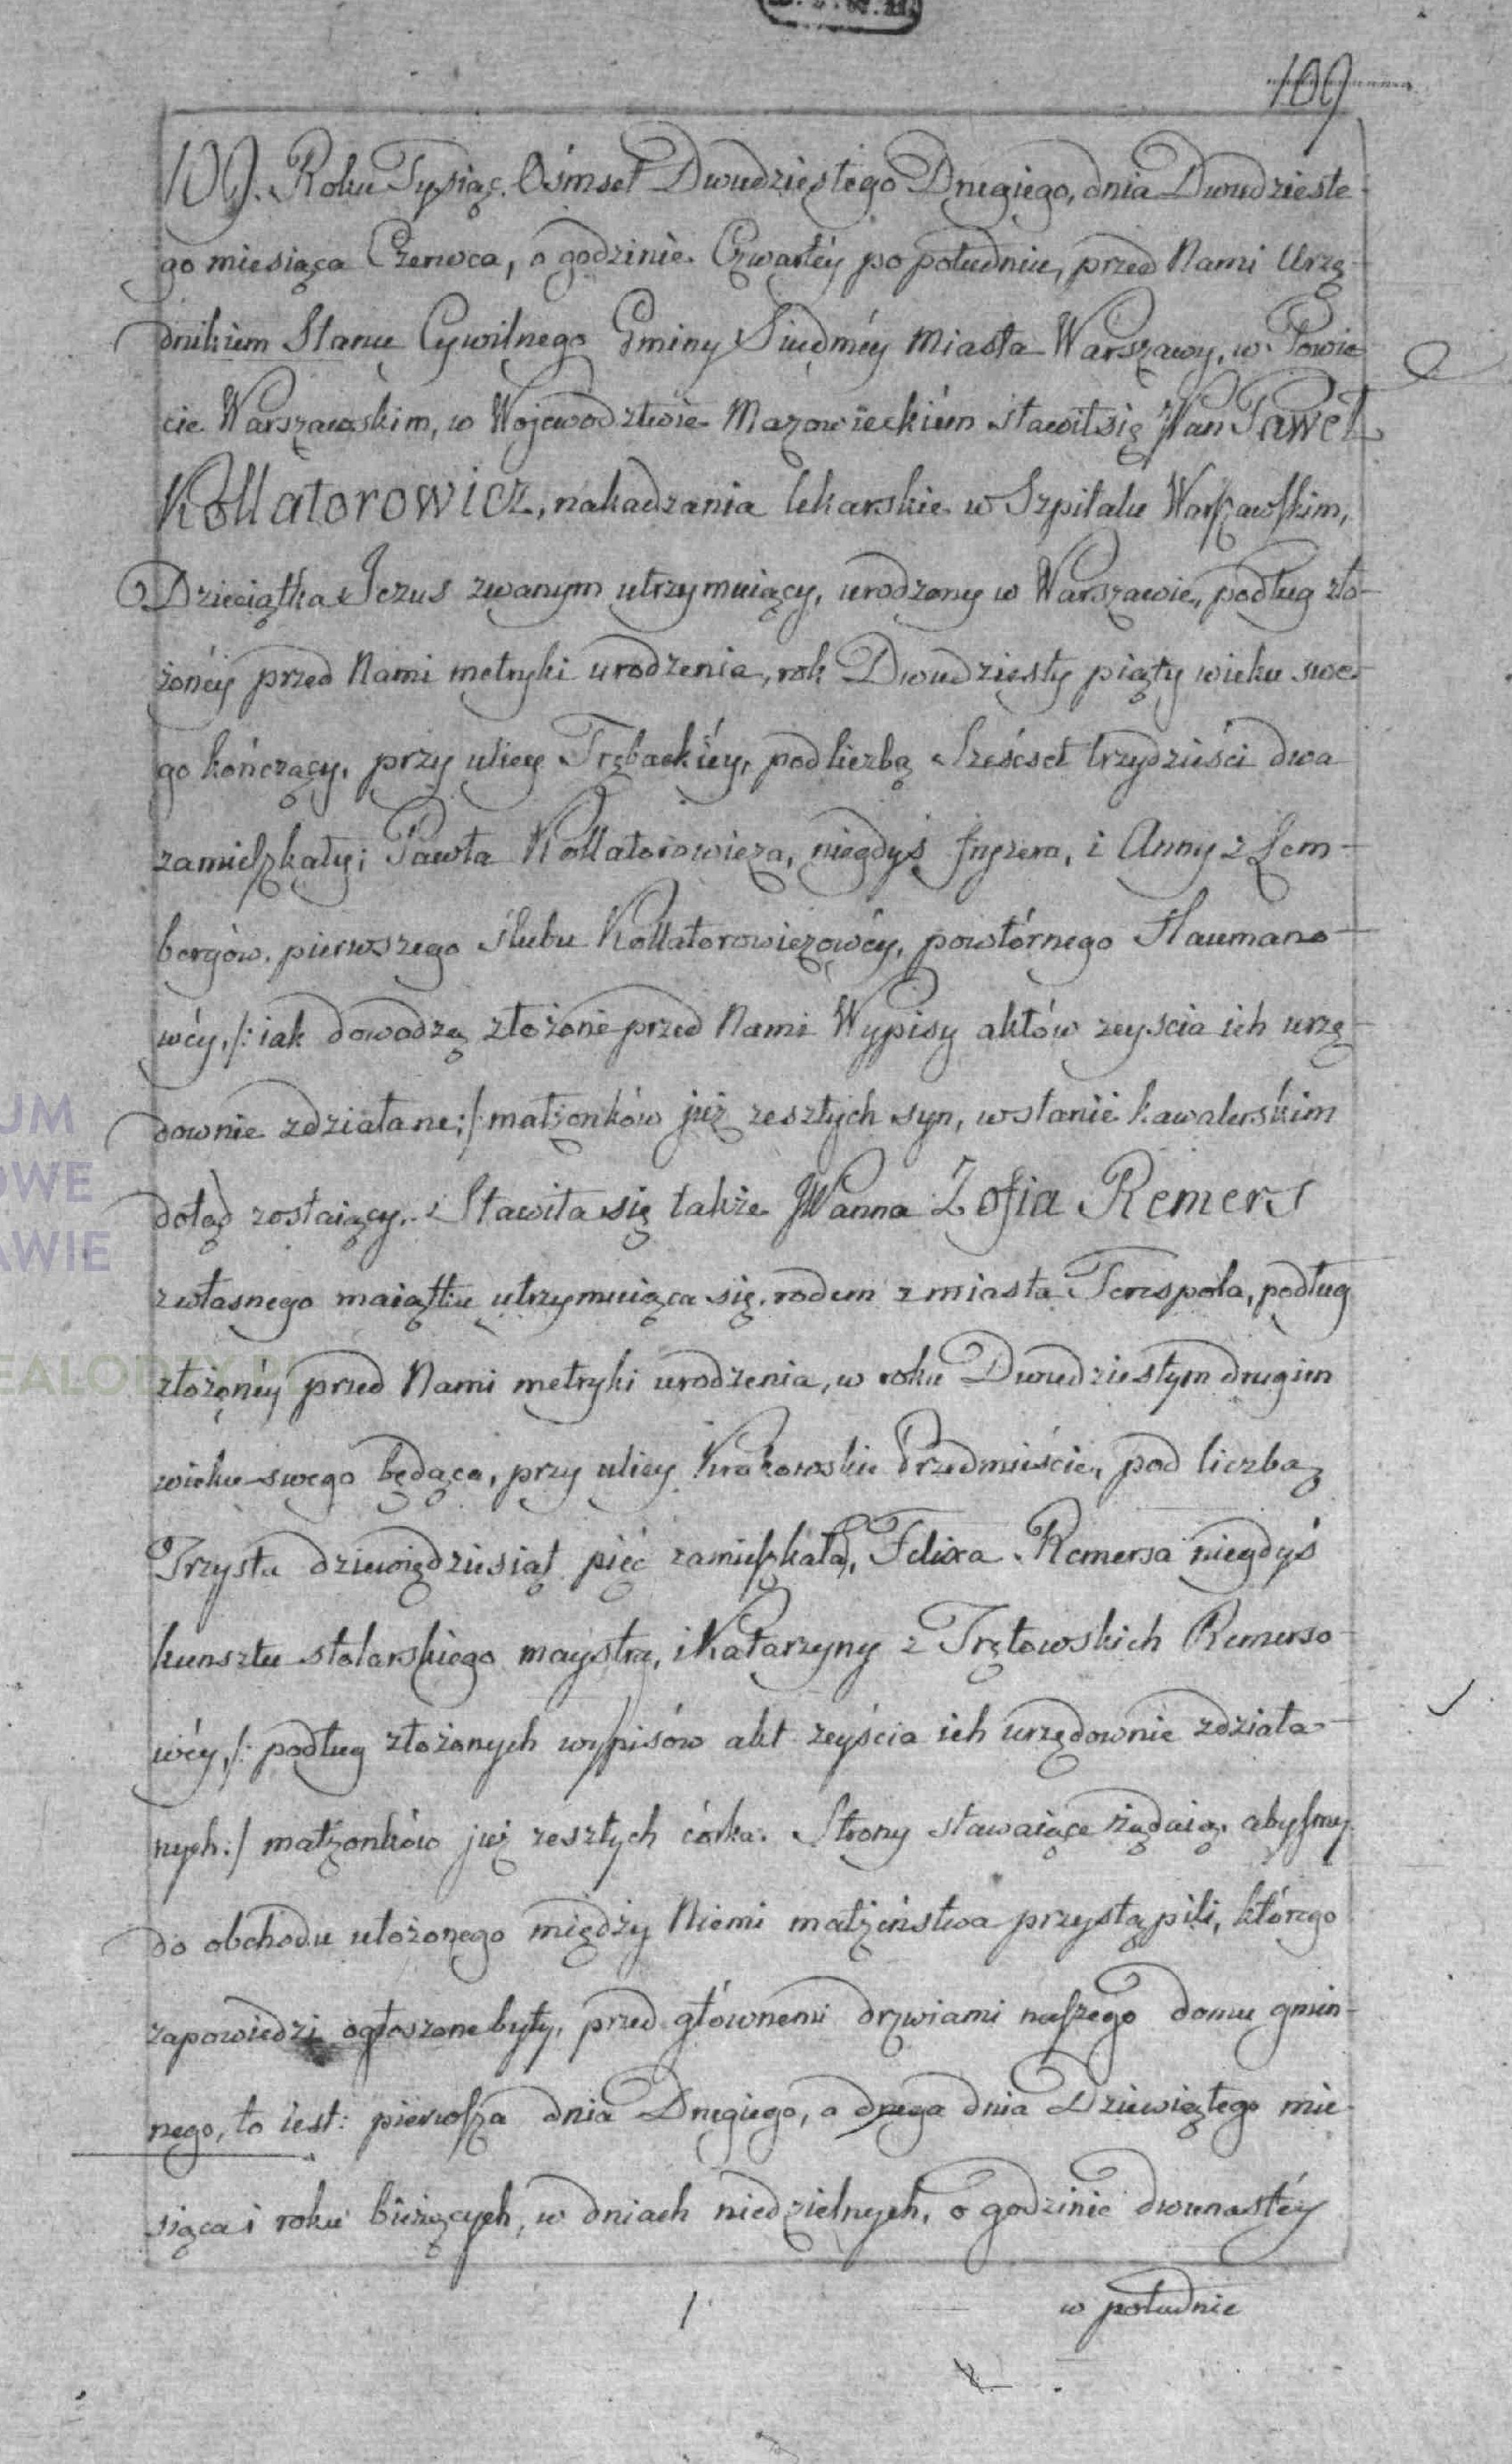 109
109. Roku Tysiąc Ośmset Dwudziestego Drugiego, dnia Dwudzieste-
go miesiąca Czerwca, o godzinie Czwartéy po południu, przed Nami Urzę-
dnikiem Stanu Cywilnego Gminy Siudméy Miasta Warszawy, w Powie-
cie Warszawskim, w Wojewodztwie Mazowieckiém stawił się JPan Paweł
Kollatorowicz, nakadzania lekarskie w Szpitalu Warszawskim,
Dzieciątka Jezus zwanym utrzymuiący, urodzony w Warszawie, podług zło-
żonéy przed Nami metryki urodzenia, rok Dwudziesty piąty wieku swe-
go kończący, przy ulicy Trębackiéy, pod liczbą Sześćset trzydzieści dwa
zamieszkały; Pawła Kollatorowicza, niegdyś, i Anny z Lem-
bergów, pierwszego ślubu Kollatorowiczowéy, powtórnego Naumano-
wéy, /: iak dowodzą złożone przed Nami Wypisy aktów zeyscia ich urzę-
downie zdziałane; :/ małżonków już zeszłych syn, w stanie kawalerskim
dotąd zostaiący. Stawiła się także JPanna Zofia Remers
z własnego maiątku utrzymuiąca się, rodem z miasta Terespola, podług
złożonéy przed Nami metryki urodzenia, w roku Dwudziestym drugim
wieku swego będąca, przy ulicy Krakowskie Przedmieście, pod liczbą
Trzysta dziewiędziesiąt pięć zamieszkała, Felixa Remersa niegdyś
kunsztu stolarskiego maystra, i Katarzyny z Trętowskich Remerso-
wéy, /: podług złożonych wypisów akt zeyścia ich urzędownie zdziała-
nych :/ małżonków już zeszłych córka. Strony stawaiące żądaią, abyśmy
do obchodu ułożonego między Niemi małżeństwa przystąpili, którego
zapowiedzi ogłoszone były, przed głównemi drzwiami naszego domu gmin-
nego, to iest: pierwsza dnia Drugiego, a druga dnia Dziewiątego mie-
siąca i roku bieżących, w dniach niedzielnych, o godzinie dwunastéy
w południe